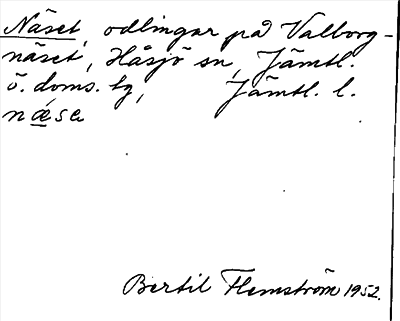 Näset, odlingar på Valborg-
näset, Håsjö sn, Jämtl.
ö. doms. tg, Jämtl. l.
næsa
Bertil Flemström 1952.